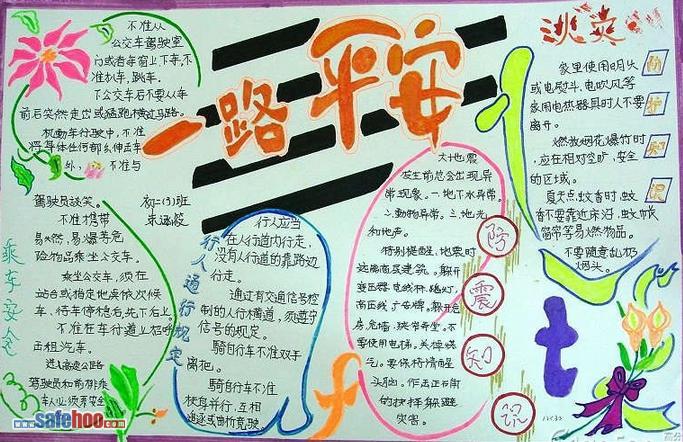 一路平安
不准从
公交车驾驶室
门或者车窗上下车,不
准扒车、跳车。
下公交车后不要从车
前后突然走出或猛跑横过马路。
机动车行驶中,不准
将身体任何部分伸出车
外,不准与
驾驶员谈笑。
不准携带
易燃、易爆等危
险物品乘坐公交车。
乘坐公交车,须在
站台或指定地点依次候
车,待车停稳后,先下后上。
不准在车行道上招呼
出租汽车。
进入高速公路
驾驶员和前排乘
车人必须系安全
乘车安全
初二(3)班
行人通行规定
行人应当
在人行道内行走,
没有人行道的靠路边
行走。
通过有交通信号控
制的人行横道,须遵守
信号的规定。
骑自行车不准双手
离把。
骑自行车不准
扶身并行,互相
追逐或曲折竞驶
大地震
发生前总会出现异
常现象。一、地下水异常。
二、动物异常。三、地光
和地声。
特别提醒,地震时
远离高大建筑。躲开
变压器、电线杆、路灯、
高压线、广告牌。躲开危
房、危墙、狭窄弄堂。不
要使用电梯。关掉煤
气。要保持清醒
头脑。作出正确
的抉择躲避
灾害。
防震知识
家里使用明火
或电熨斗、电吹风等
家用电热器具时人不要
离开。
燃放烟花爆竹时
,应在相对空旷、安全
的区域。
夏天点蚊香时,蚊
香不要靠近床沿、蚊帐
窗帘等易燃物品。
不要随意乱扔
烟头。
防护知识
www.safehoo.com